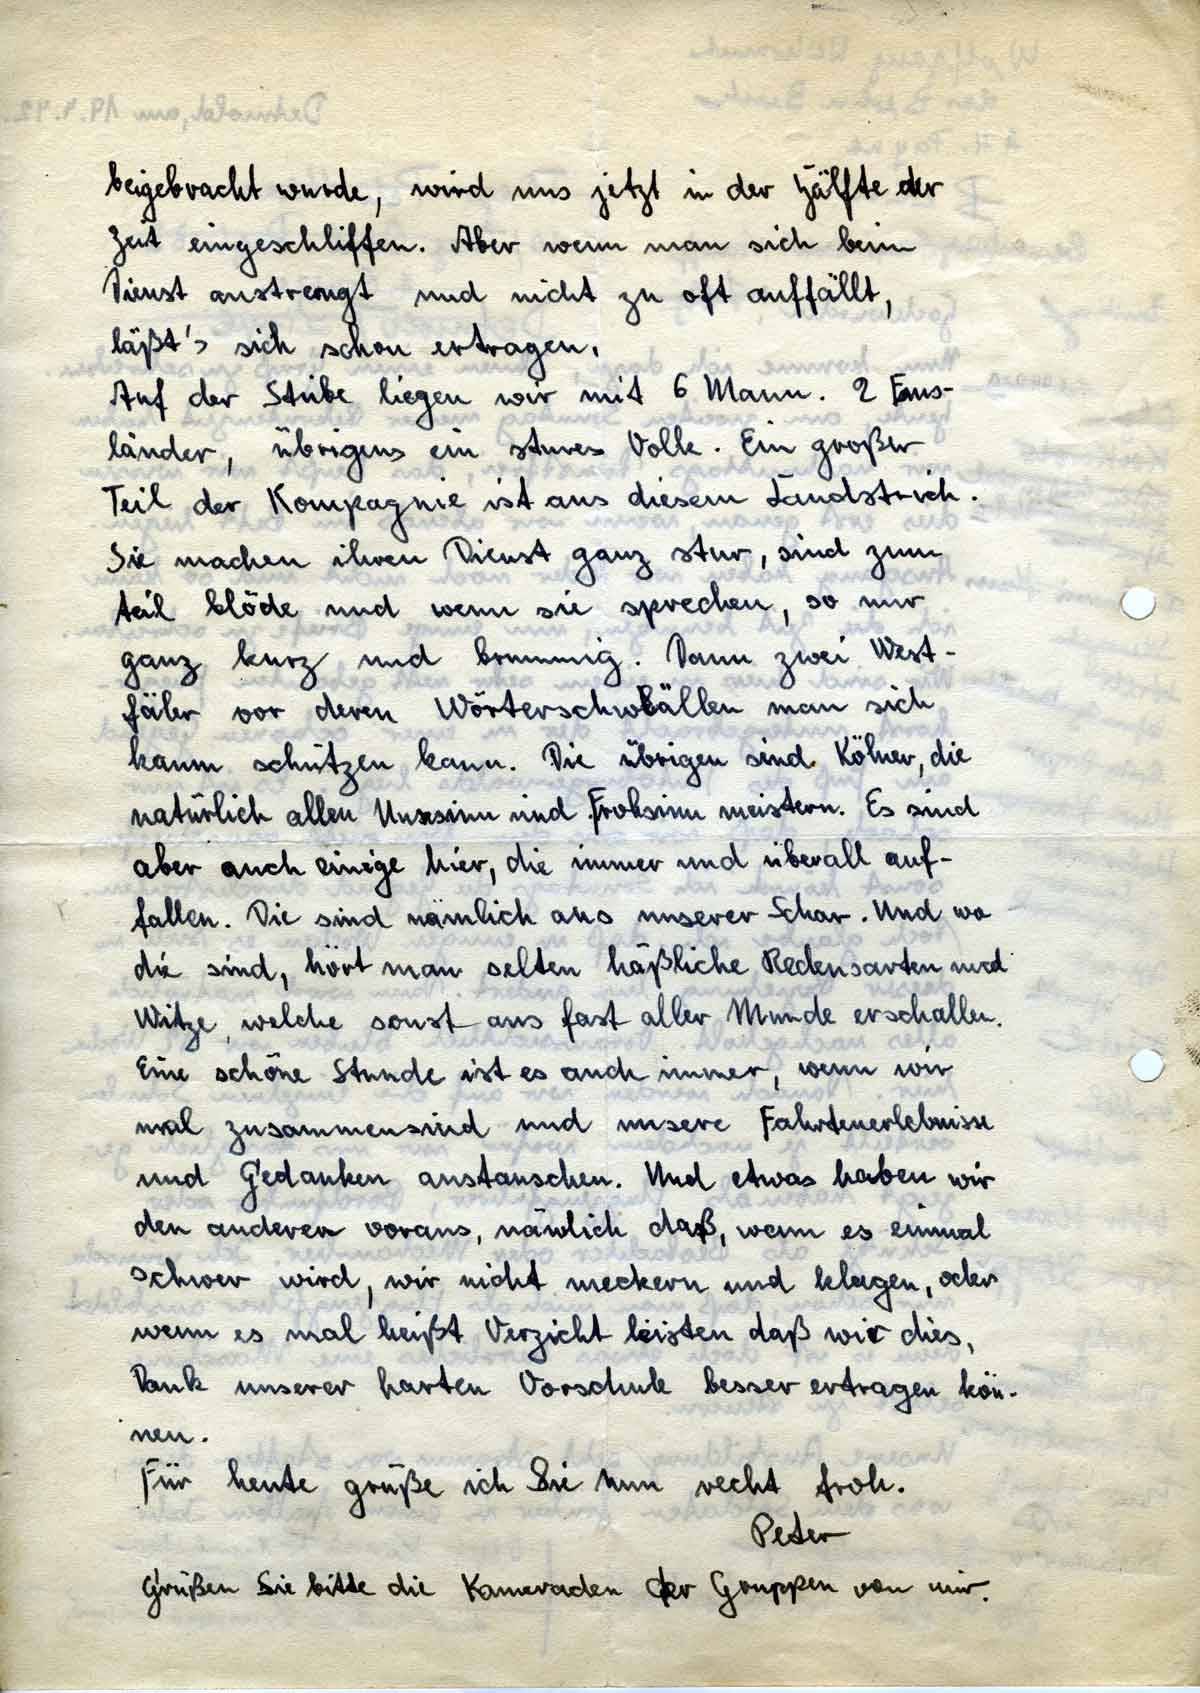 beigebracht wurde, wird uns jetzt in der Hälfte der
Zeit eingeschliffen. Aber wenn man sich beim
Dienst anstrengt und nicht zu oft auffällt,
läßt's sich schon ertragen.
Auf der Stube liegen wir mit 6 Mann. 2 Ems-
länder, übrigens ein stures Volk. Ein großer
Teil der Kompagnie ist aus diesem Landstrich.
Sie machen ihren Dienst ganz stur, sind zum
teil blöde und wenn sie sprechen, so nur
ganz kurz und brummig. Dann zwei West-
fäler vor deren Wörterschwällen man sich
kaum schützen kann. Die übrigen sind Kölner, die
natürlich allen Unsinn und Frohsinn meistern. Es sind
aber auch einige hier, die immer und überall auf-
fallen. Die sind nämlich aus unserer Schar. Und wo
die sind, hört man selten häßliche Redensarten und
Witze, welche sonst aus fast aller Munde erschallen.
Eine schöne Stunde ist es auch immer, wenn wir
mal zusammensind und unsere Fahrtenerlebnisse
und Gedanken austauschen. Und etwas haben wir
den anderen voraus, nämlich daß, wenn es einmal
schwer wird, wir nicht meckern und klagen, oder
wenn es mal heißt Verzicht leisten daß wir dies,
Dank unserer harten Vorschule besser ertragen kön-
nen.
Für heute grüße ich Sie nun recht froh.
Peter
Grüßen Sie bitte die Kameraden der Gruppen von mir.